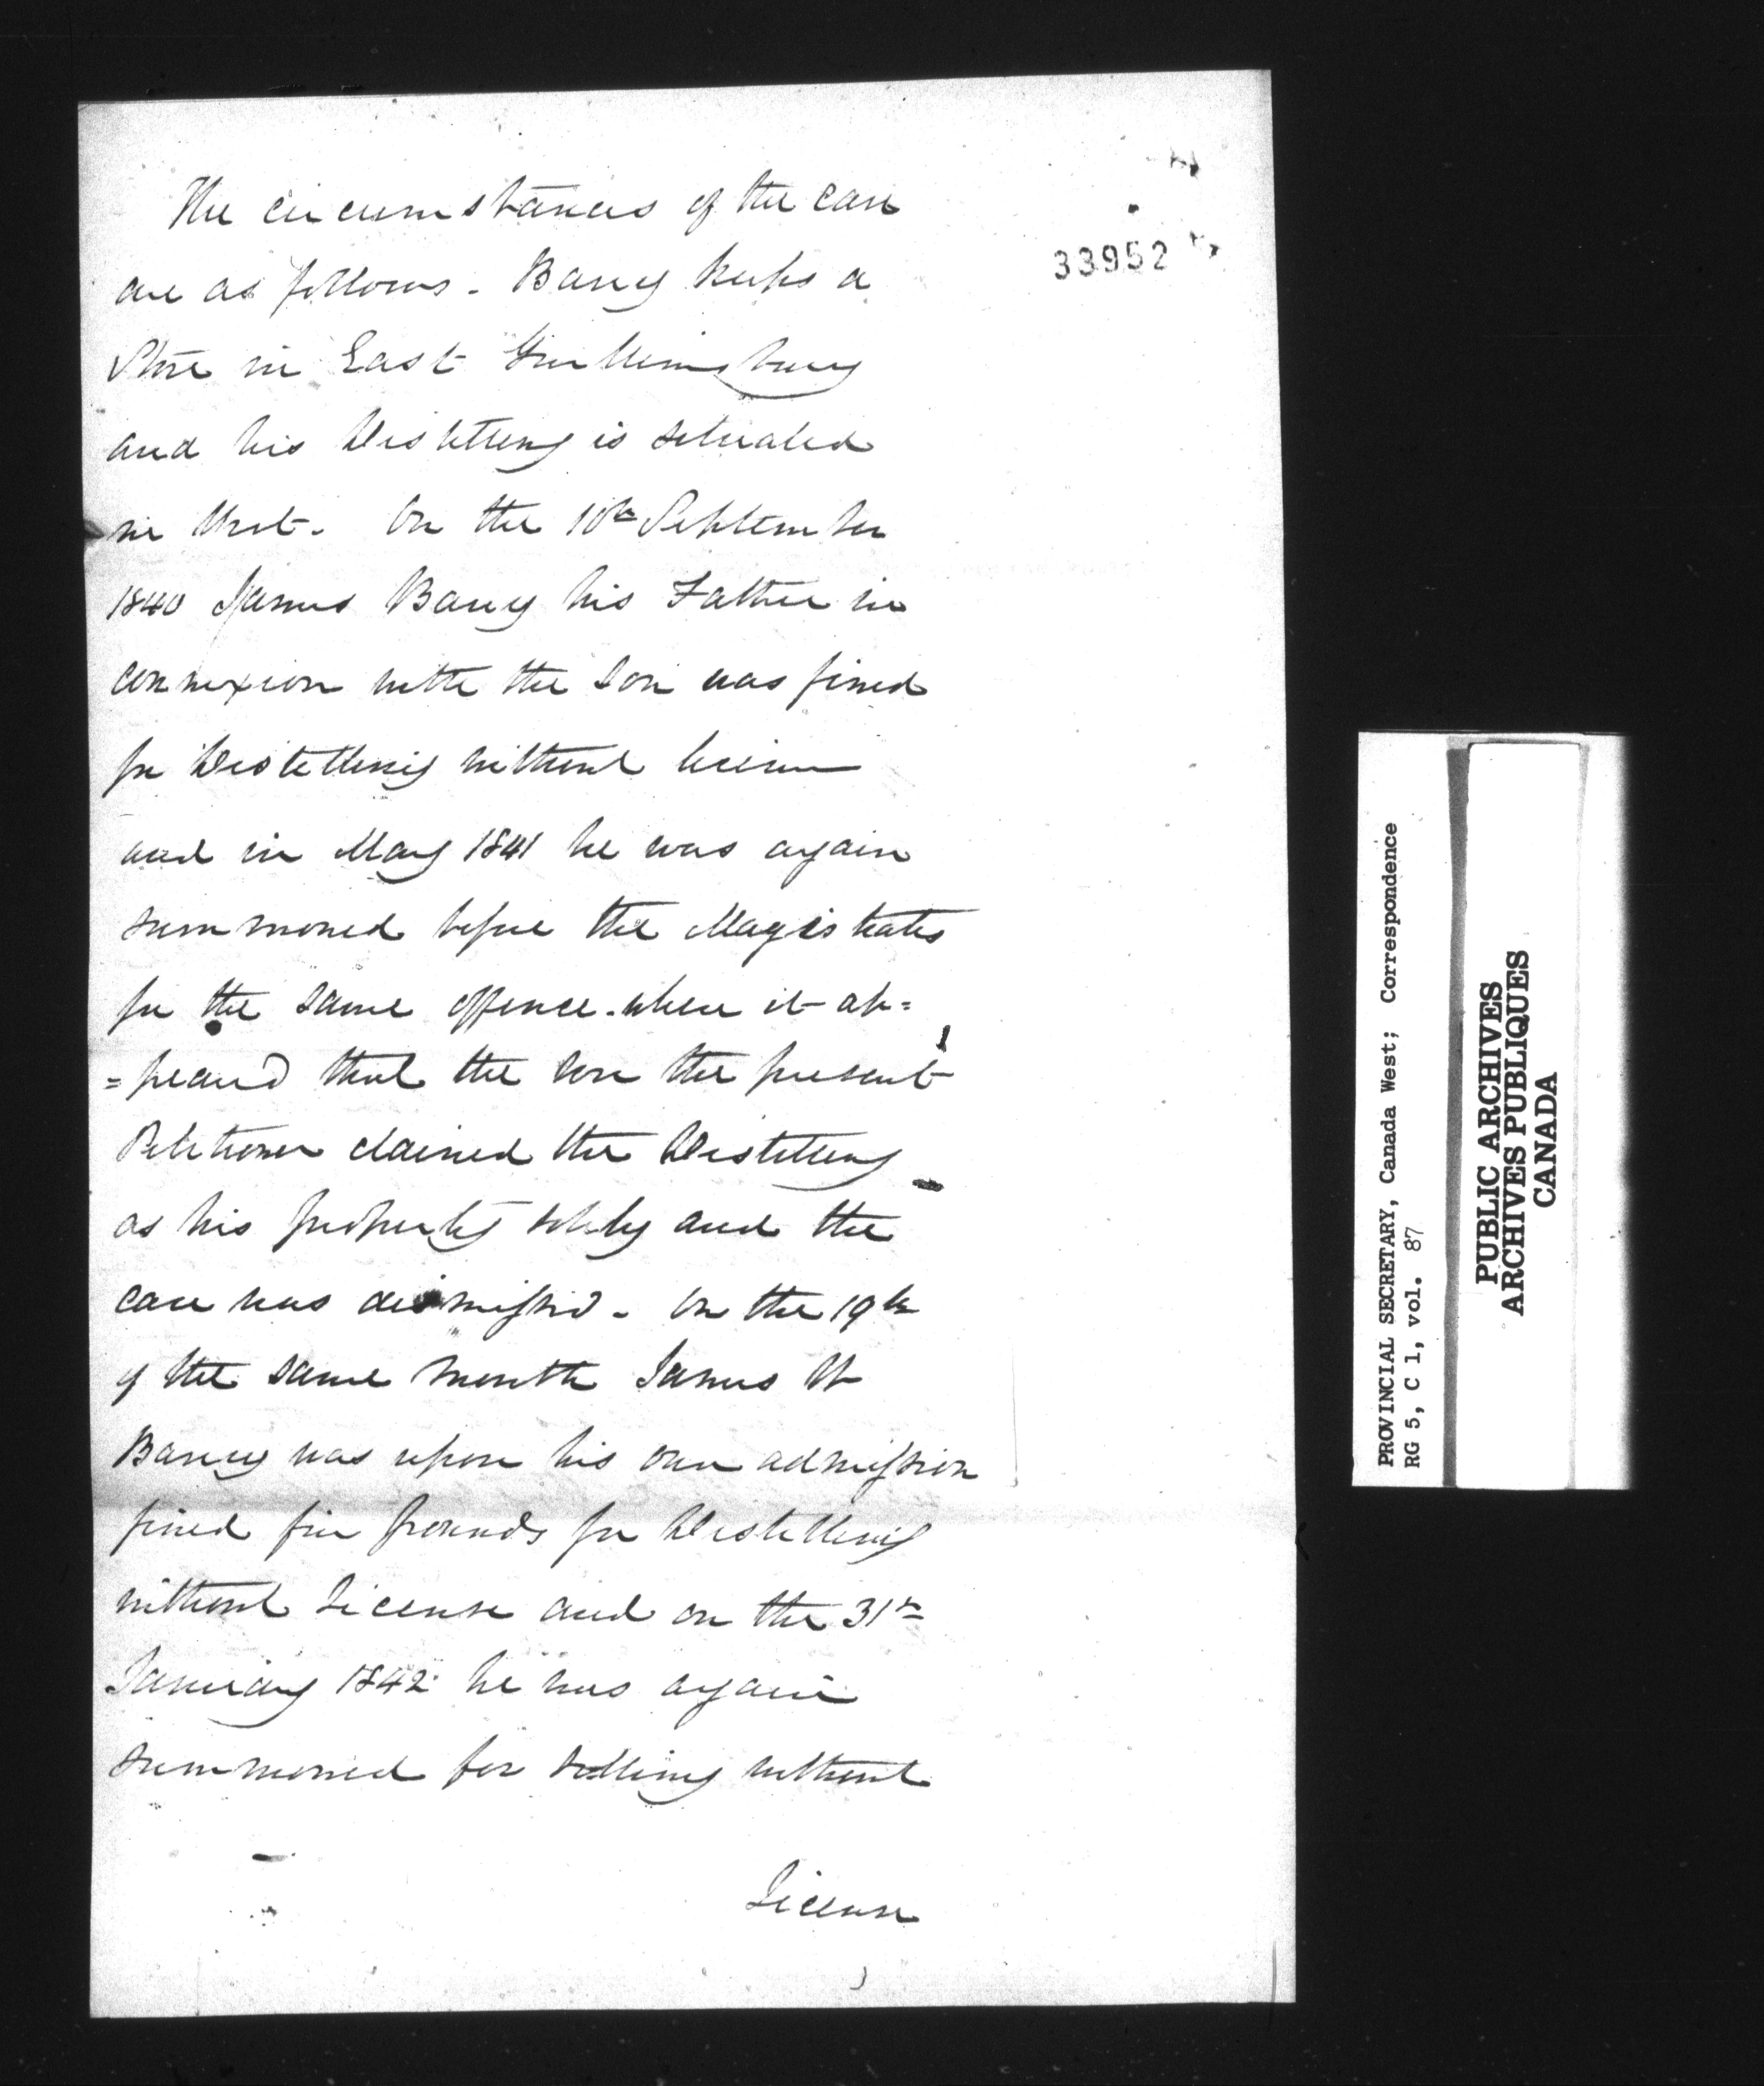 The circumstances of the case
are as follows. Barry keeps a
Store in East Gwillimsbury
and his Distillery is situated
in that. On the 10th September
1840 James Barry his Father in
connexion with the Son was fined
for Distilling without license
and in May 1841 he was again
summoned before the Magistrates
for the same offence. when it ap=
=peared that the son the present
Petitioner claimed the Distillery
as his property solely and the
case was dismissed. On the 19th
of the same month James W
Barry was upon his own admission
fined five pounds for Distilling
without License and on the 31st
January 1842 he was again
summoned for selling without
License
33952
PROVINCIAL SECRETARY, Canada West; Correspondence
RG 5, C 1, vol. 87
PUBLIC ARCHIVES
ARCHIVES PUBLIQUES
CANADA